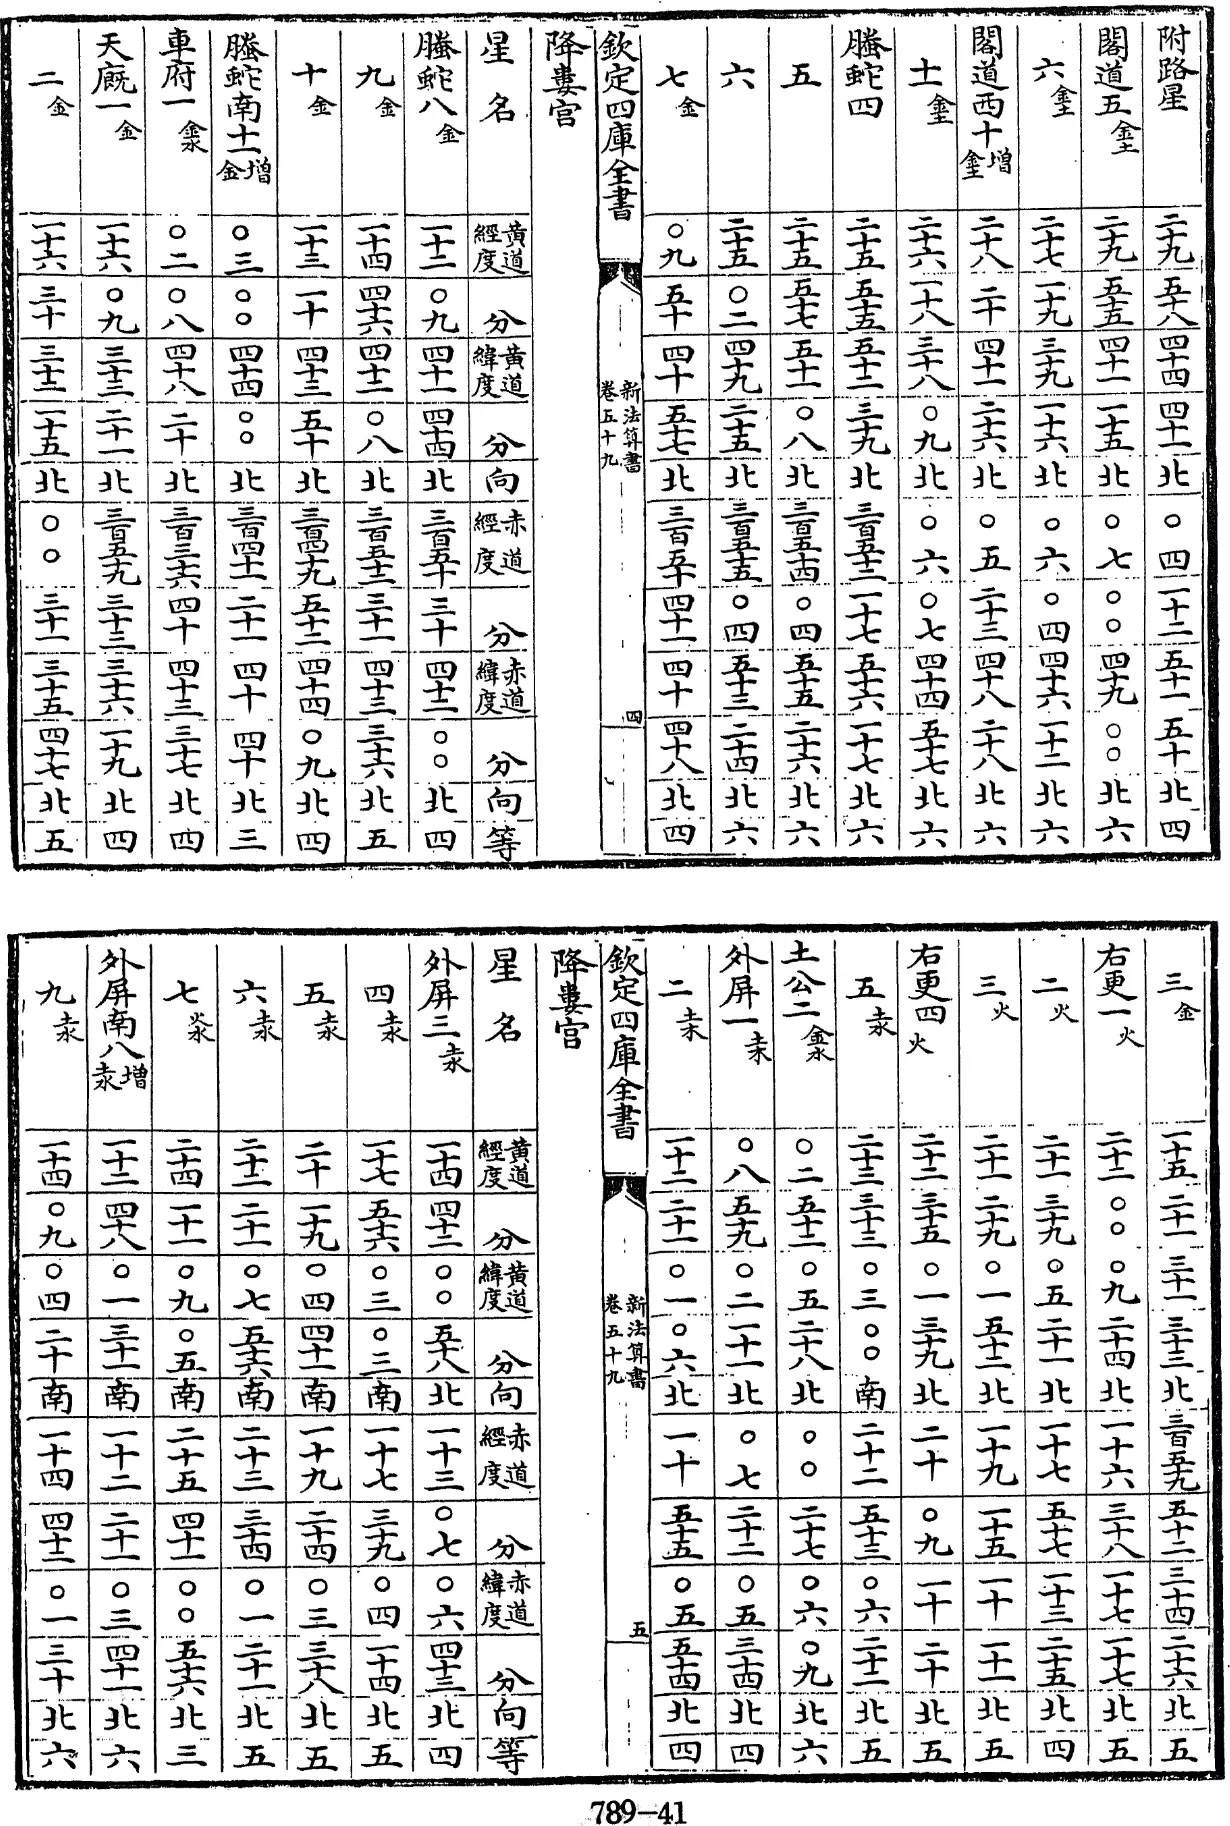 附路星 二十九 五十八 四十四 四十一 北 〇四 一十二 五十一 五十 北 四
閣道五 金土 二十九 五十五 四十一 一十五 北 〇七 〇〇 四十九 〇〇 北 六
六 金土 二十七 一十九 三十九 一十六 北 〇六 〇四 四十六 一十二 北 六
閣道西十增 金土 二十八 二十 四十一 二十六 北 〇五 二十三 四十八 二十八 北 六
十一 金土 二十六 一十八 三十八 〇九 北 〇六 〇七 四十四 五十七 北 六
螣蛇四 二十五 五十五 五十二 三十九 北 三百五十二 一十七 五十六 一十七 北 六
五 二十五 五十七 五十一 〇八 北 三百五十四 〇四 五十五 二十六 北 六
六 二十五 〇二 四十九 二十五 北 三百五十五 〇四 五十三 二十四 北 六
七 金 〇九 五十 四十 五十七 北 三百五十 四十一 四十 四十八 北 四
欽定四庫全書 新法算書 卷五十九 四
降婁宮
星名 黃道經度 分 黃道緯度 分 向 赤道經度 分 赤道緯度 分 向 等
螣蛇八 金 一十二 〇九 四十一 四十四 北 三百五十 三十 四十二 〇〇 北 四
九 金 一十四 四十六 四十二 〇八 北 三百五十二 三十一 四十三 三十六 北 五
十 金 一十三 一十 四十三 五十 北 三百四十九 五十二 四十四 〇九 北 四
螣蛇南十二增 金 〇三 〇〇 四十四 〇〇 北 三百四十二 二十一 四十 四十 北 三
車府一 金水 〇二 〇八 四十八 二十 北 三百三十六 四十 四十三 三十七 北 四
天廐一 金 一十六 〇九 三十三 二十一 北 三百五十九 三十三 三十六 一十九 北 四
二 金 一十六 三十 三十二 一十五 北 〇〇 三十一 三十五 四十七 北 五
三 金 一十五 二十一 三十一 三十三 北 三百五十九 五十二 三十四 二十六 北 五
右更一 火 二十二 〇〇 〇九 二十四 北 一十六 三十八 一十七 一十七 北 五
二 火 二十一 三十九 〇五 二十一 北 一十七 五十七 一十三 二十五 北 四
三 火 二十一 二十九 〇一 五十二 北 一十九 一十五 一十 一十一 北 五
右更四 火 二十二 三十五 〇一 三十九 北 二十 〇九 一十 二十 北 五
五 土水 二十三 三十三 〇三 〇〇 南 二十二 五十三 〇六 二十二 北 五
土公二 金水 〇二 五十二 〇五 二十八 北 〇〇 二十七 〇六 〇九 北 六
外屏一 土木 〇八 五十九 〇二 一十一 北 〇七 二十二 〇五 三十四 北 四
二 土木 一十二 二十一 〇一 〇六 北 一十 五十五 〇五 五十四 北 四
欽定四庫全書 新法算書 卷五十九 五
降婁宮
星名 黃道經度 分 黃道緯度 分 向 赤道經度 分 赤道緯度 分 向 等
外屏三 土水 一十四 四十二 〇〇 五十八 北 一十三 〇七 〇六 四十三 北 四
四 土水 一十七 五十六 〇三 〇三 南 一十七 三十九 〇四 一十四 北 五
五 土水 二十 一十九 〇四 四十一 南 一十九 二十四 〇三 三十八 北 五
六 土水 二十二 二十一 〇七 五十六 南 二十三 三十四 〇一 二十一 北 五
七 二十四 一十一 〇九 〇五 南 二十五 四十一 〇〇 五十六 北 三
外屏南八增 土水 一十二 四十八 〇一 三十一 南 一十二 二十一 〇三 四十一 北 六
九 土水 一十四 〇九 〇四 二十 南 一十四 四十二 〇一 三十 北 六
789-41